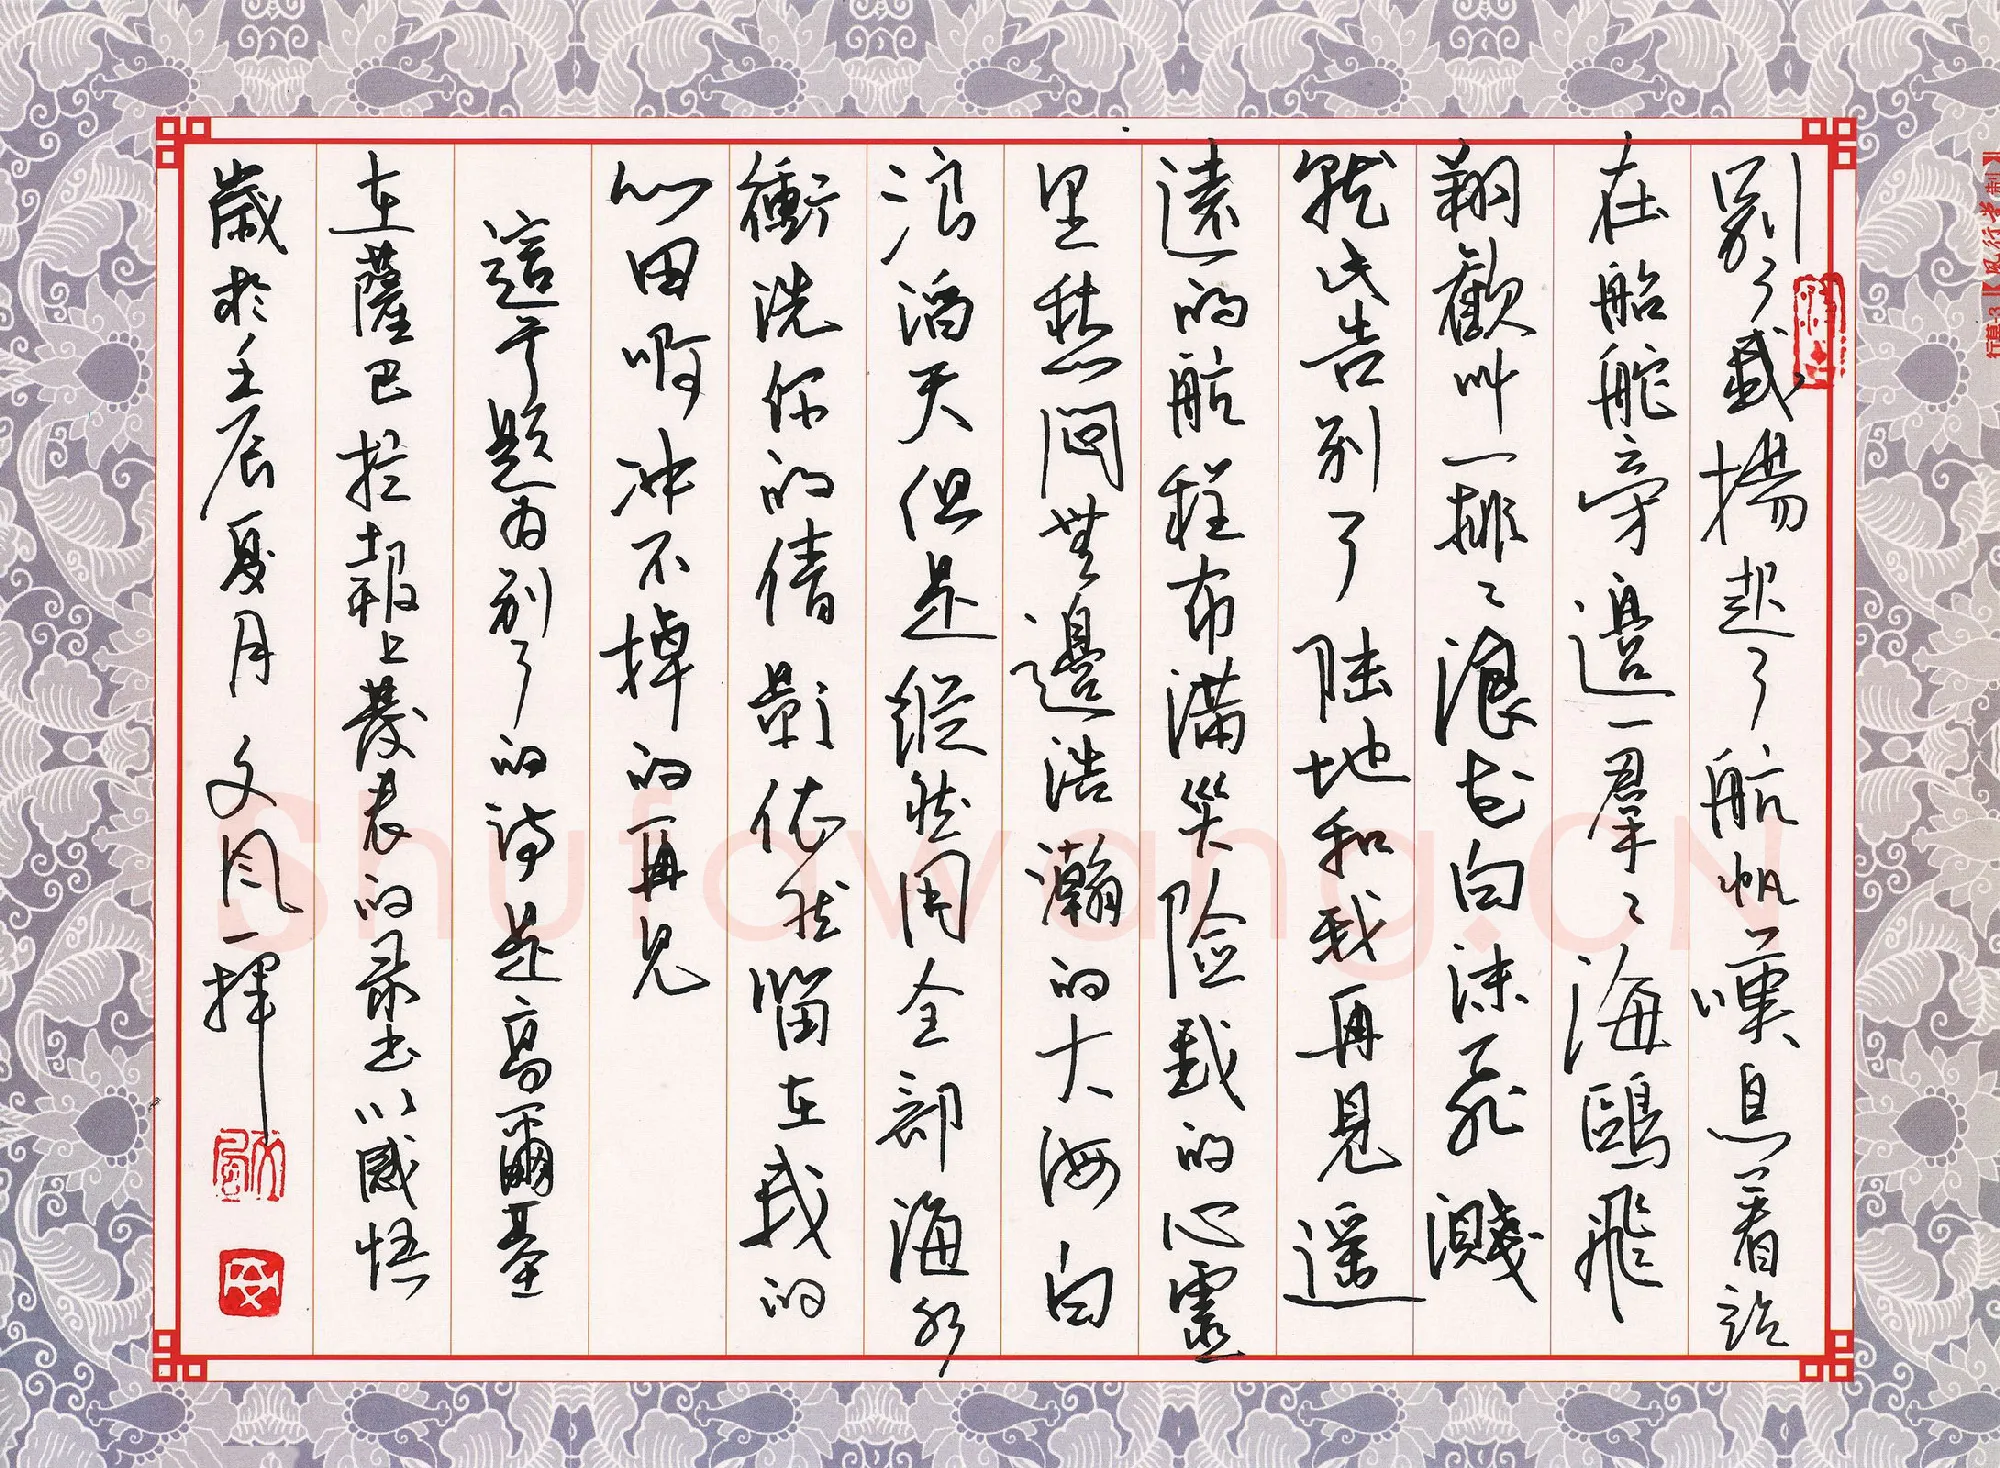 别了我揚起了航帆嘆息着站
在船舵旁邊一羣々海鷗飛
翔歡叫一排々浪花白沫飛濺
就此告别了陆地和我再見遥
遠的航程布滿災险我的心靈
里愁悶無邊浩瀚的大海白
浪滔天但是縱然用全部海水
衝洗你的倩影依然留在我的
心田啊冲不掉的再見
這首題为别了的詩是高爾基
在薩巴拉報上發表的录出以感悟
歲於壬辰夏月文風一揮
Shufawang.CN